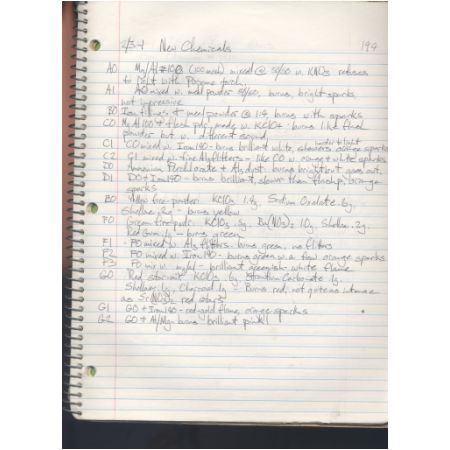 2/3-4 New Chemicals 194
A0 Mg/Al #100 (100 mesh) mixed @ 50/50 w. KNO3 refuses
to light with Propane torch.
A1 A0 mixed w. meal powder 50/50, burns, bright sparks,
not impressive
B0 Iron filings + meal powder @ 1:4, burns with sparks
C0 Mg Al 100 + flash pdr. made w. KClO4 - burns like flash
powder but w. different sound
C1 C0 mixed w. Iron 140 - burns brilliant white, showers orange sparks
C2 C1 mixed w. fine Al flitters - like C0 w. orange + white sparks
D0 Ammonium Perchlorate + Al dust - burns bright but goes out.
D1 D0 + Iron 140 - burns brilliant, slower than flash pdr, orange
sparks
E0 Yellow fire powder: KClO3 Sodium Oxalate .6g,
Shellac - burns yellow
F0 Green fire pdr: KClO3 .5g, Ba(NO3)2 1.0g, Shellac .2g,
Red Gum - burns green
F1 F0 mixed w. Alg flitters - burns green, no flitters
F2 F0 mixed w. Iron 140 - burns green w. a few orange sparks
F3 F0 mix w. mg/al - brilliant greenish white flame
G0 Red star mix KClO3 .6g Strontium Carbonate .1g
Shellac .1g Charcoal .1g - Burns red, not quite as intense
as Sr(NO3)2 red stars
G1 G0 + Iron 140 - red-gold flame, orange sparks
G2 G0 + Al/Mg - burns brilliant pink!